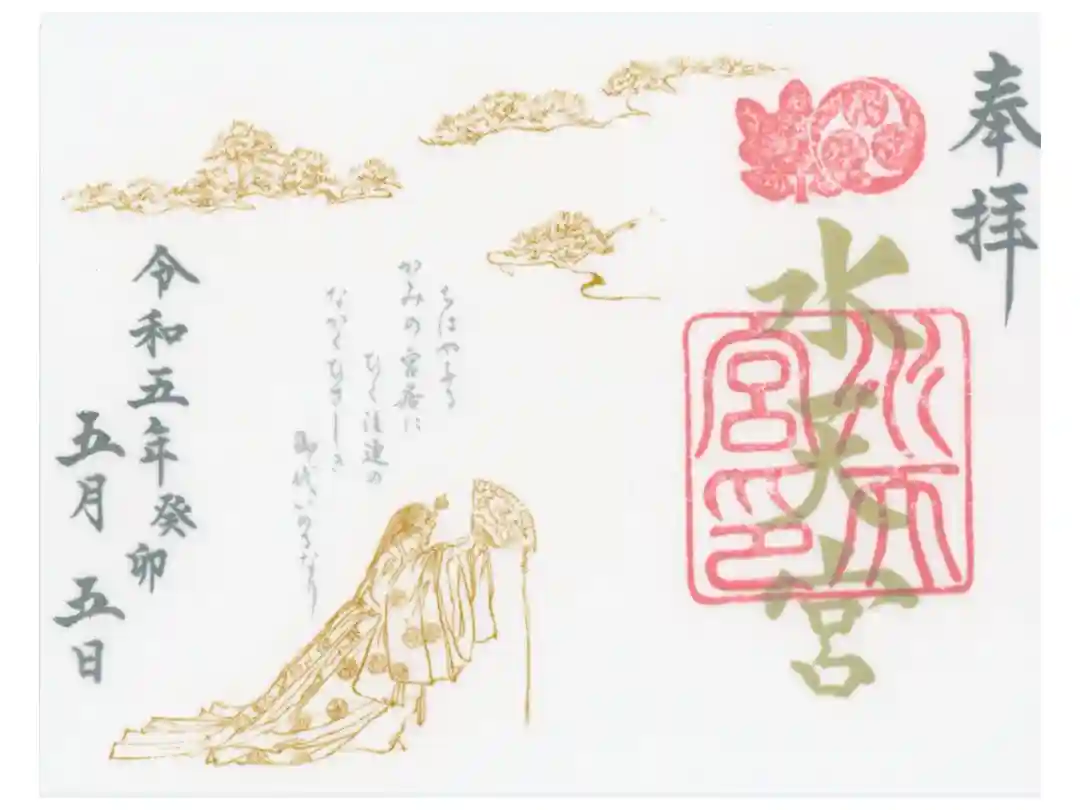 奉拝
水天宮
水天宮印
ちはやふる
かみの宮居に
ひく注連の
ながくひさしき
御代いのるなり
令和五年癸卯
五月 五日